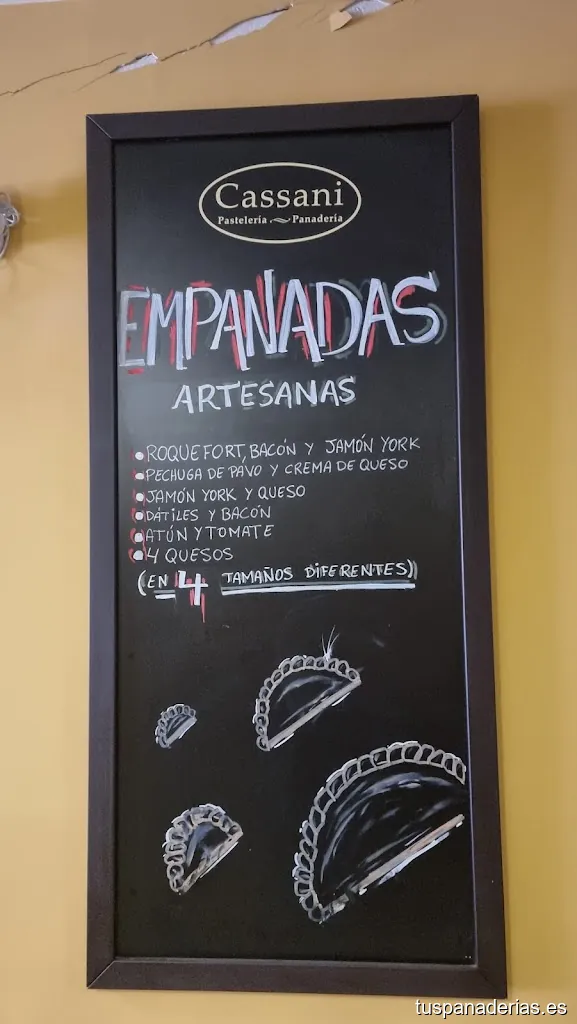 Cassani
Pastelería Panadería
EMPANADAS
ARTESANAS
ROQUEFORT, BACÓN Y JAMÓN YORK
PECHUGA DE PAVO Y CREMA DE QUESO
JAMÓN YORK Y QUESO
DÁTILES Y BACÓN
ATÚN Y TOMATE
4 QUESOS
(EN 4 TAMAÑOS DIFERENTES)
tuspanaderias.es